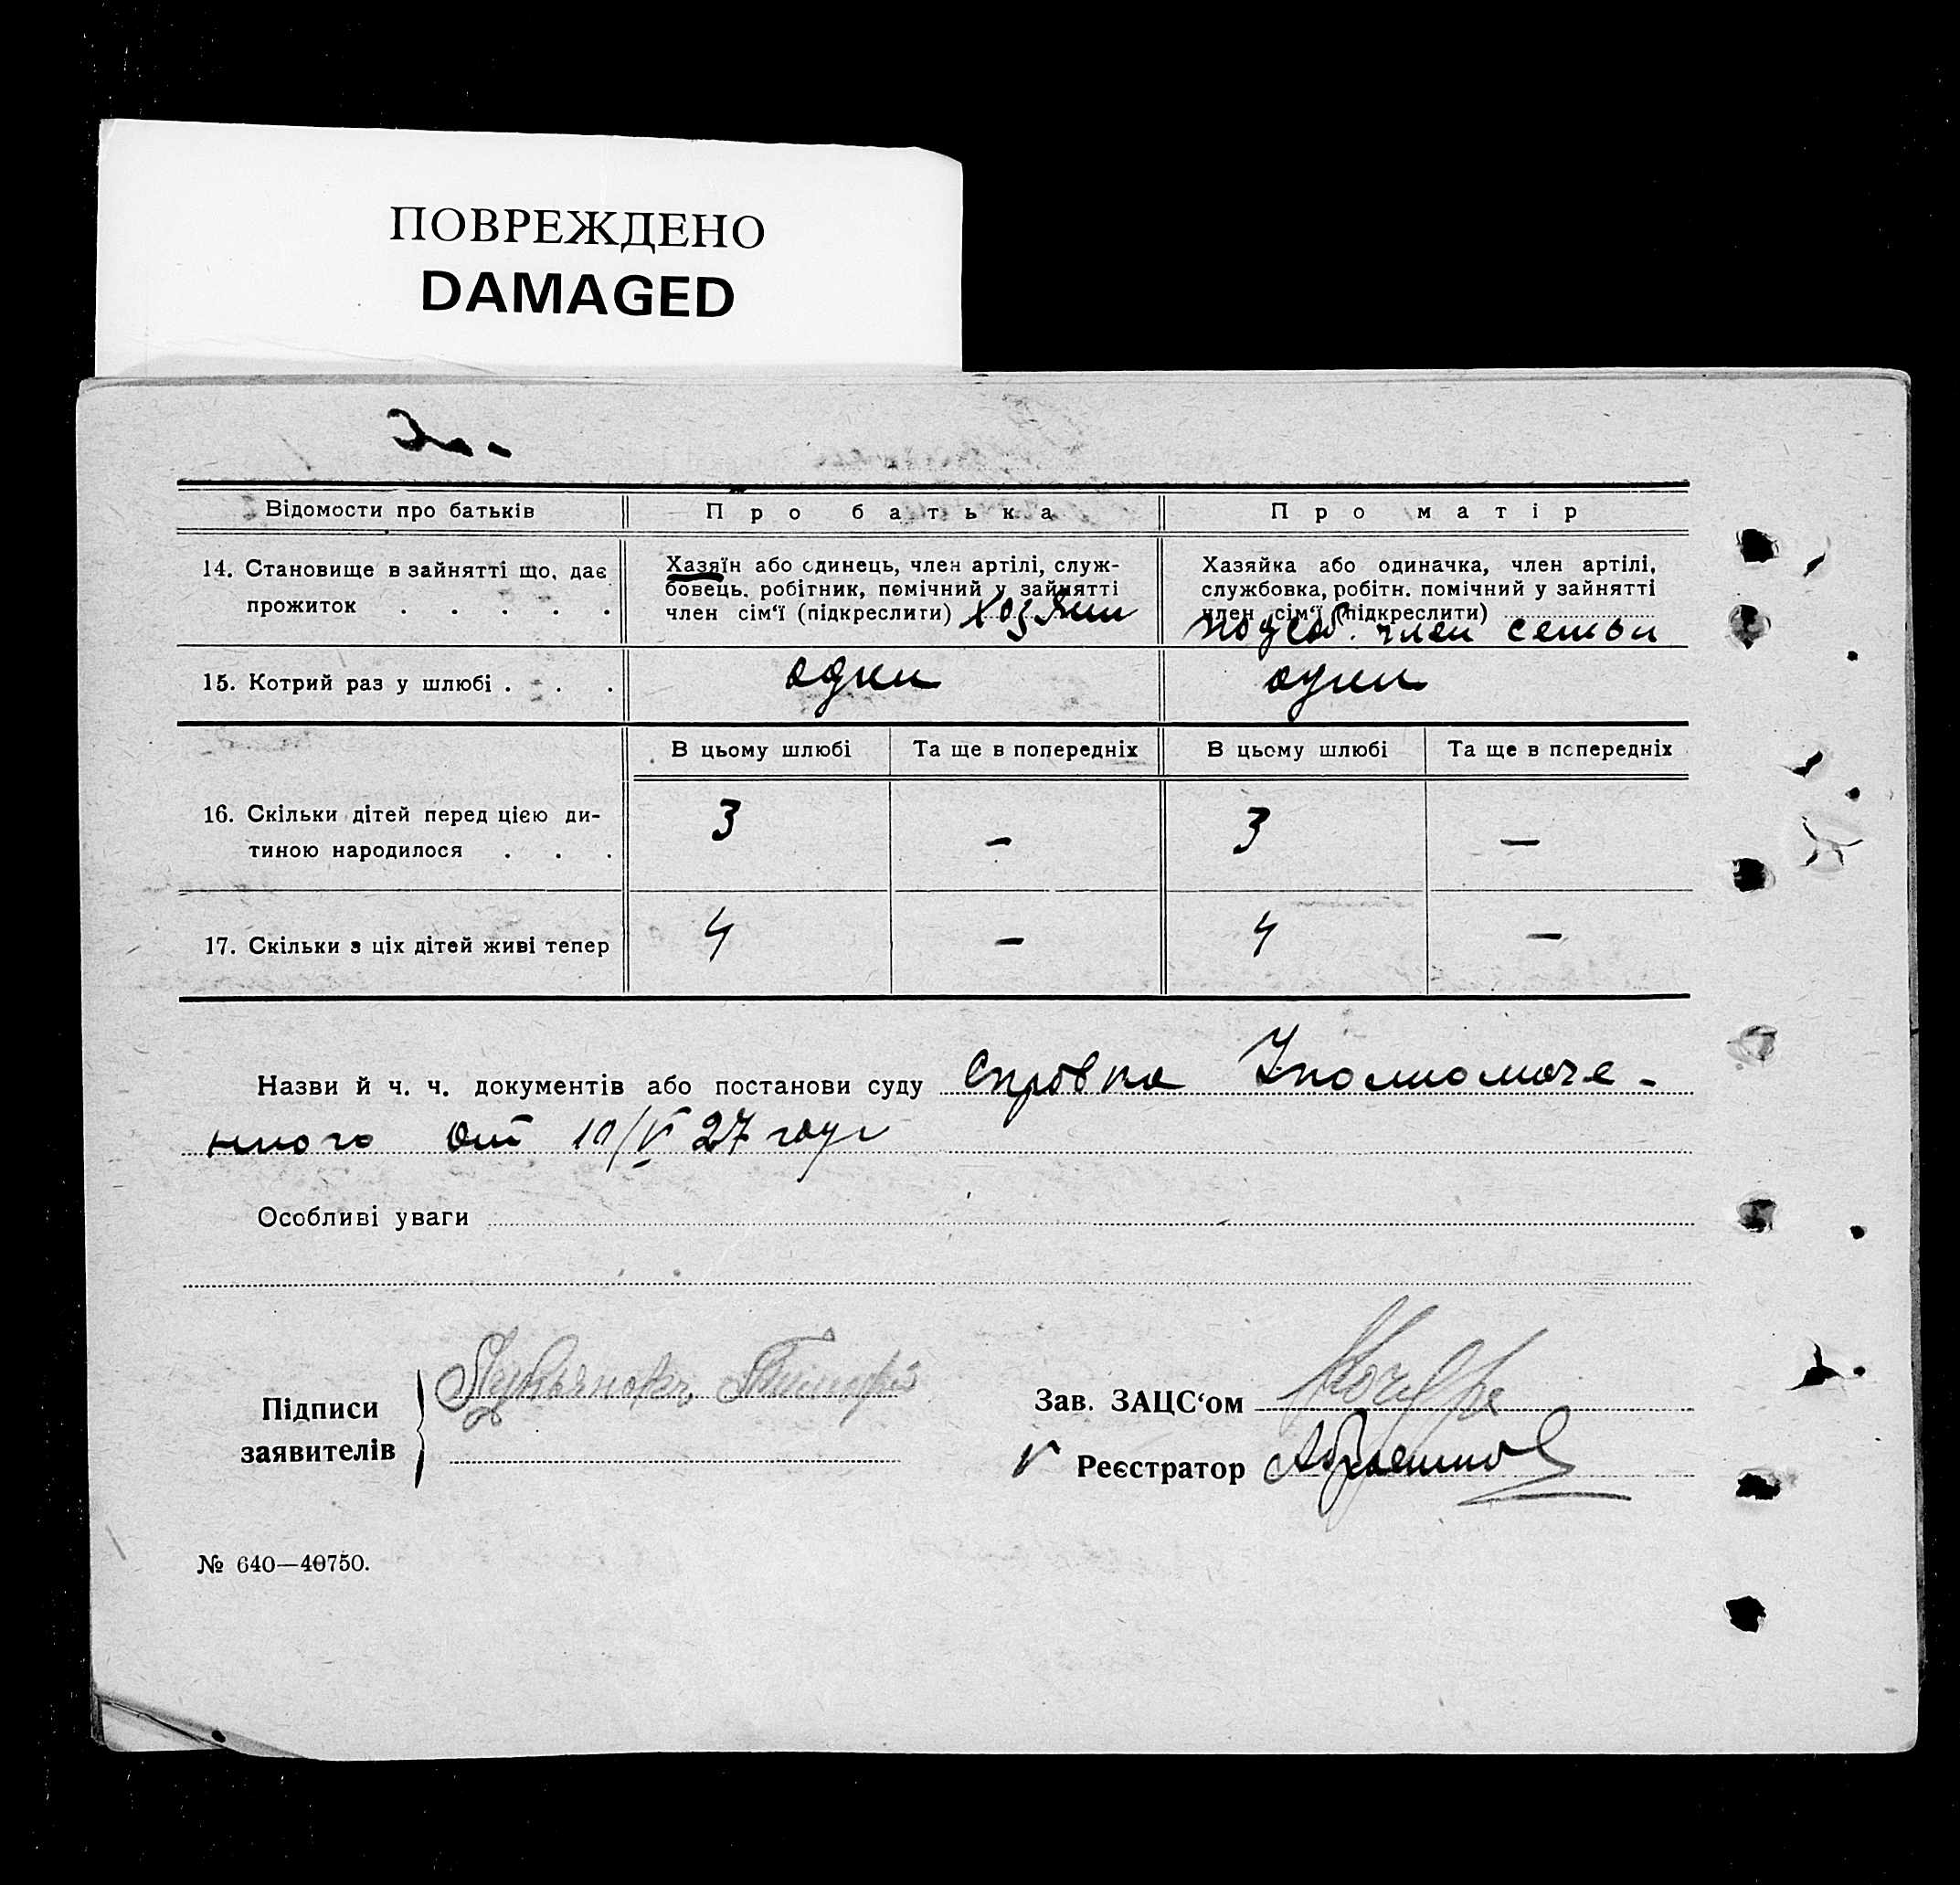 ПОВРЕЖДЕНО
DAMAGED
Відомости про батьків
Про батька
Про матір
14. Становище в зайнятті що, дає
прожиток . . . . .
Хазяїн або одинець, член артілі, служ-
бовець. робітник, помічний у зайнятті
член сім‘ї (підкреслити) хозяин
Хазяйка або одиначка, член артілі,
службовка, робітн. помічний у зайнятті
член сім‘ї (підкреслити)
подсоб. член семьи
15. Котрий раз у шлюбі . . .
один
один
В цьому шлюбі
Та ще в попередніх
В цьому шлюбі
Та ще в попередніх
16. Скільки дітей перед цією ди-
тиною народилося . . .
3
–
3
–
17. Скільки з ціх дітей живі тепер
4
–
4
–
Назви й ч. ч. документів або постанови суду Справка Уполномоче-
нного от 10/V 27 году
Особливі уваги
Підписи
заявителів
Зав. ЗАЦС‘ом
Реєстратор
№ 640—40750.